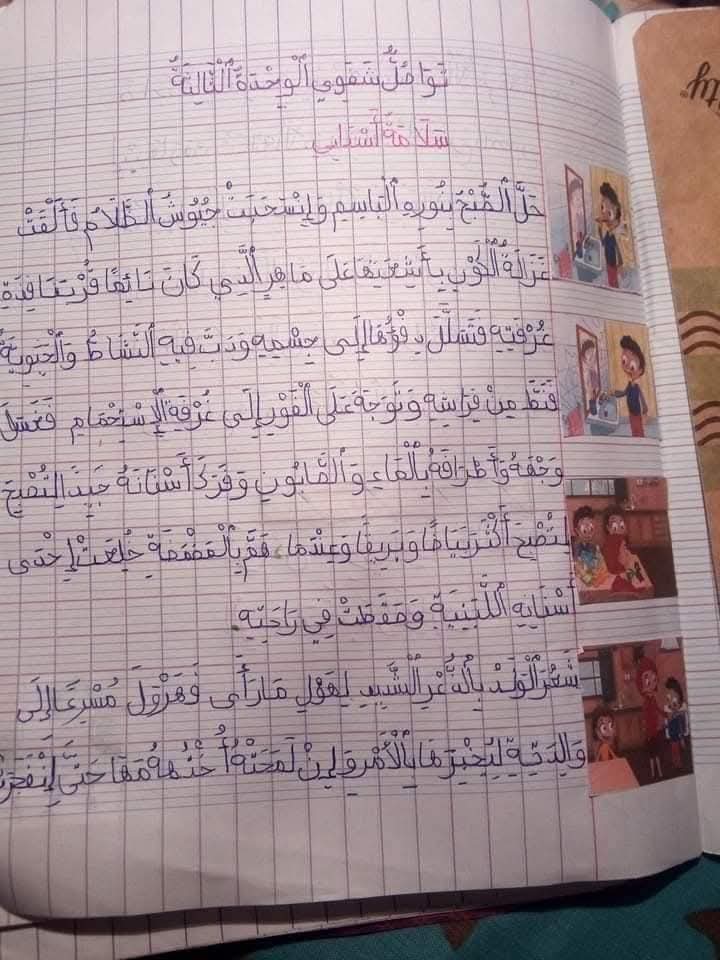 تَوَاصُلٌ شَفَوِي الْوِحْدَةُ الثَّالِثَةُ
سَلَامَةُ أَسْنَانِي
حَلَّ الصُّبْحُ بِنُورِهِ الْبَاسِمِ وَانْسَحَبَتْ جُيُوشُ الظَّلَامِ فَأَلْقَتْ
غَزَالَةُ الْكَوْنِ بِأَشِعَّتِهَا عَلَى مَاهِرٍ الَّذِي كَانَ نَائِمًا قُرْبَ نَافِذَةِ
غُرْفَتِهِ فَتَسَلَّلَ دِفْؤُهَا إِلَى جِسْمِهِ وَدَبَّ فِيهِ النَّشَاطُ وَالْحَيَوِيَّةُ
فَنَطَّ مِنْ فِرَاشِهِ وَتَوَجَّهَ عَلَى الْفَوْرِ إِلَى غُرْفَةِ الْإِسْتِحْمَامِ فَغَسَلَ
وَجْهَهُ وَأَطْرَافَهُ بِالْمَاءِ وَالصَّابُونِ وَفَرَكَ أَسْنَانَهُ جَيِّدَ التُصْبِحَ
لِتُصْبِحَ أَكْثَرَ بَيَاضًا وَبَرِيقًا وَعِنْدَمَا هَمَّ بِالْمَضْمَضَةِ خُلِعَتْ إِحْدَى
أَسْنَانِهِ اللَّبَنِيَةِ وَسَقَطَتْ فِي رَاحَتِهِ
شَعُرَ الْوَلَدُ بِالذُّعْرِ الشَّدِيدِ لِهَوْلِ مَا رَأَى فَهَرْوَلَ مُسْرِعًا إِلَى
وَالِدَتِهِ لِيُخْبِرَهَا بِالْأَمْرِ وَإِنْ لَمَحَتْهُ أُخْتُهُ مَهَا حَتَّى انْفَجَرَتْ